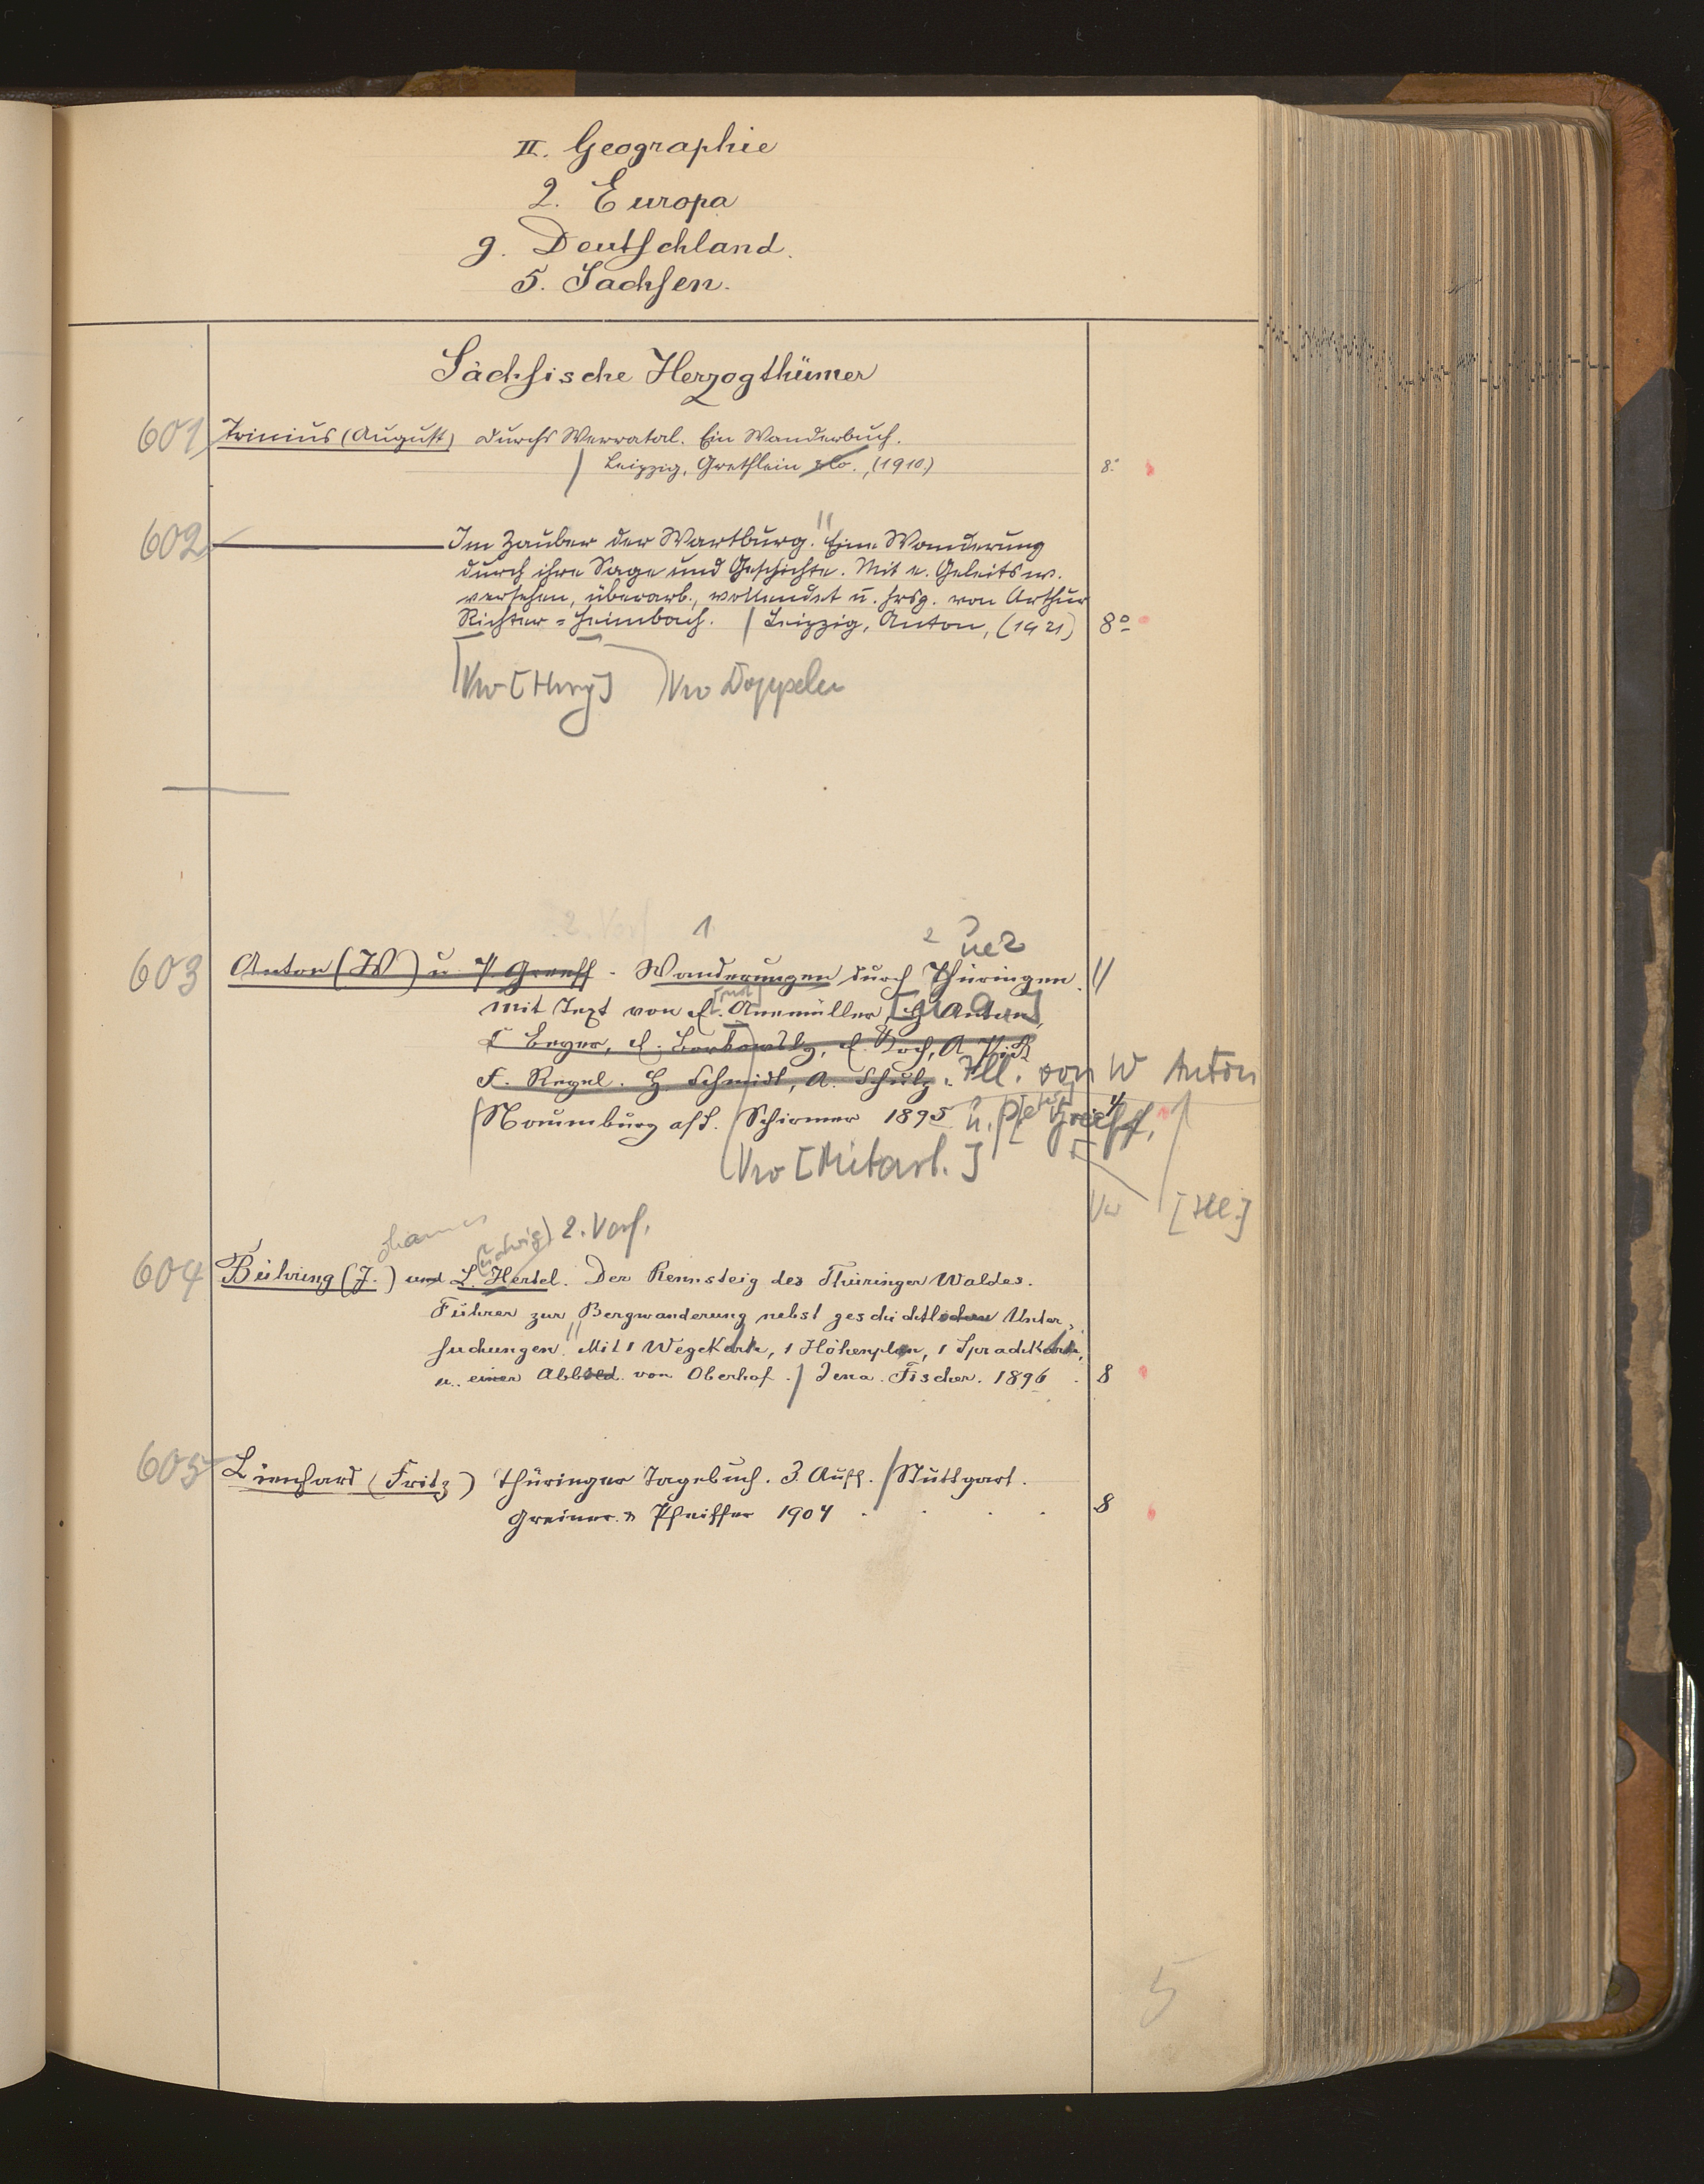 II. Geographie
2. Europa
g. Deutschland.
5. Sachsen.
Sächsische Herzogthümer
601 Trinius (August) Durchs Werratal. Ein Wanderbuch.
/ Leipzig, Grethlein & Co., (1910) 8°
602 Im Zauber der Wartburg. Eine Wanderung
durch ihre Sage und Geschichte. Mit e. Geleitsw.
versehen, überarb., vollendet u. hrsg. von Arthur
Richter=Heimbach. / Leipzig, Anton, (1921) 8°
Vw [Hrsg] Vw Doppeln
1 2 ue2
603 Anton (W) u. P. Greeff - Wanderungen durch Thüringen. //
mit Text von E. Anemüller, G Anton,
E Beyer, E. Borkowsky, E. Koch, A. Pick
F. Regel. H. Schmidt, A. Schulz. Ill. von W Anton
/ Naumburg a/S. / Schirmer 1895 u. P[eter] Greeff. 4
Vw [Mitarb.]
Vw [Ill.]
ohannes (udwig) 2. Verf.
604 Bühring (J.) und L. Hertel. Der Rennsteig des Thüringer Waldes.
Führer zur Bergwanderung nebst geschichtlichen Unter=
suchungen. Mit 1 Wegekarte, 1 Höhenplan, 1 Sprachkarte,
u. einer Abbild. von Oberhof. / Jena. Fischer. 1896. 8
605 Lienhard (Fritz) Thüringer Tagebuch. 3. Aufl. / Stuttgart.
Greiner & Pfeiffer 1904 . . . . 8
5